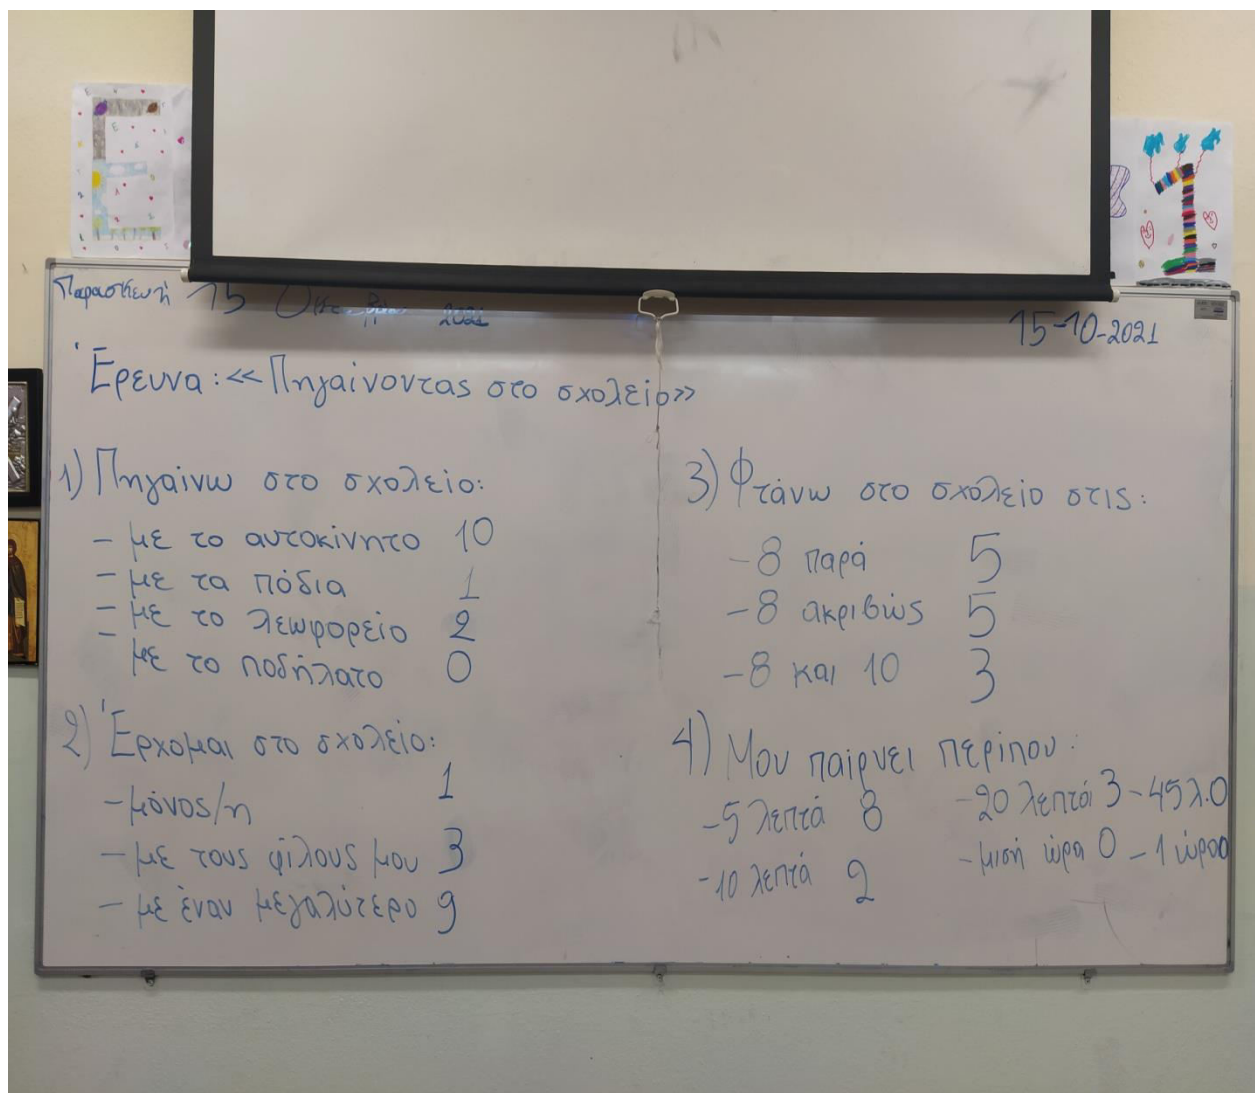 Παρασκευή 15 Οκτωβρίου 2021
15-10-2021
Έρευνα: «Πηγαίνοντας στο σχολείο»
1) Πηγαίνω στο σχολείο:
- με το αυτοκίνητο 10
- με τα πόδια 1
- με το λεωφορείο 2
- με το ποδήλατο 0
2) Έρχομαι στο σχολείο:
- μόνος/η 1
- με τους φίλους μου 3
- με έναν μεγαλύτερο 9
3) Φτάνω στο σχολείο στις:
- 8 παρά 5
- 8 ακριβώς 5
- 8 και 10 3
4) Μου παίρνει περίπου:
- 5 λεπτά 8 - 20 λεπτά 3 - 45 λ. 0
- 10 λεπτά 2 - μισή ώρα 0 - 1 ώρα 0
Ε 1